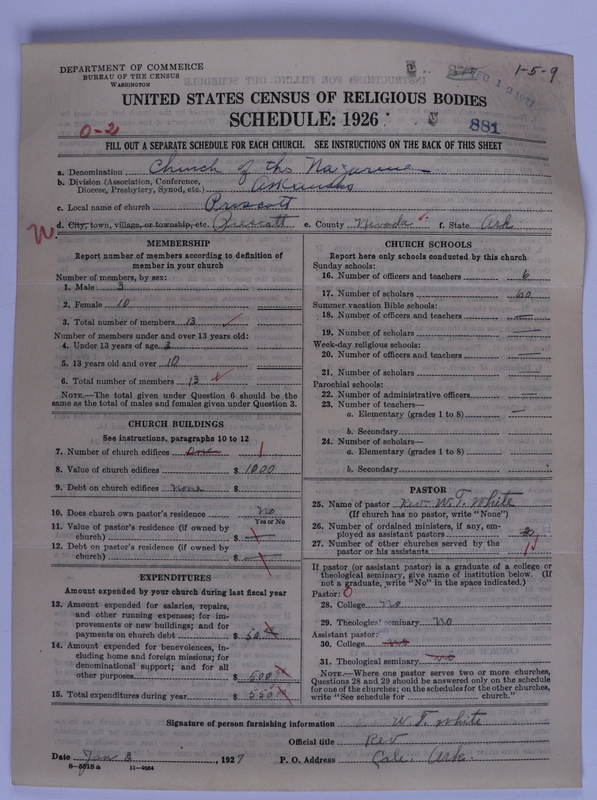 DEPARTMENT OF COMMERCE
BUREAU OF THE CENSUS
WASHINGTON
1-5-9
UNITED STATES CENSUS OF RELIGIOUS BODIES
SCHEDULE: 1926
0-2
881
FILL OUT A SEPARATE SCHEDULE FOR EACH CHURCH. SEE INSTRUCTIONS ON THE BACK OF THIS SHEET
a. Denomination Church of the Nazarene
b. Division (Association, Conference, Diocese, Presbytery, Synod, etc.) Arkansas
c. Local name of church Prescott
d. City, town, village, or township, etc. Prescott e. County Nevada f. State Ark
MEMBERSHIP
Report number of members according to definition of
member in your church
Number of members, by sex:
1. Male 3
2. Female 10
3. Total number of members 13
Number of members under and over 13 years old:
4. Under 13 years of age 3
5. 13 years old and over 10
6. Total number of members 13
NOTE.—The total given under Question 6 should be the
same as the total of males and females given under Question 3.
CHURCH BUILDINGS
See instructions, paragraphs 10 to 12
7. Number of church edifices 1
8. Value of church edifices $ 1000
9. Debt on church edifices none $
10. Does church own pastor's residence No
Yes or No
11. Value of pastor's residence (if owned by
church) $
12. Debt on pastor's residence (if owned by
church) $
EXPENDITURES
Amount expended by your church during last fiscal year
13. Amount expended for salaries, repairs,
and other running expenses; for im-
provements or new buildings; and for
payments on church debt $ 50
14. Amount expended for benevolences, in-
cluding home and foreign missions; for
denominational support; and for all
other purposes $ 500
15. Total expenditures during year $ 550
CHURCH SCHOOLS
Report here only schools conducted by this church
Sunday schools:
16. Number of officers and teachers 6
17. Number of scholars 60
Summer vacation Bible schools:
18. Number of officers and teachers —
19. Number of scholars —
Week-day religious schools:
20. Number of officers and teachers —
21. Number of scholars —
Parochial schools:
22. Number of administrative officers —
23. Number of teachers—
a. Elementary (grades 1 to 8) —
b. Secondary
24. Number of scholars—
a. Elementary (grades 1 to 8)
b. Secondary
PASTOR
25. Name of pastor Rev. W. T. White
(If church has no pastor, write "None")
26. Number of ordained ministers, if any, em-
ployed as assistant pastors
27. Number of other churches served by the
pastor or his assistants 1
If pastor (or assistant pastor) is a graduate of a college or
theological seminary, give name of institution below. (If
not a graduate, write "No" in the space indicated.)
Pastor: 0
28. College No
29. Theological seminary No
Assistant pastor:
30. College No
31. Theological seminary No
NOTE.—Where one pastor serves two or more churches,
Questions 28 and 29 should be answered only on the schedule
for one of the churches; on the schedules for the other churches,
write "See schedule for church."
Signature of person furnishing information W. T. White
Official title Rev
Date Jan 3, 1927 P. O. Address Cale, Ark.
8—5518a 11—9564